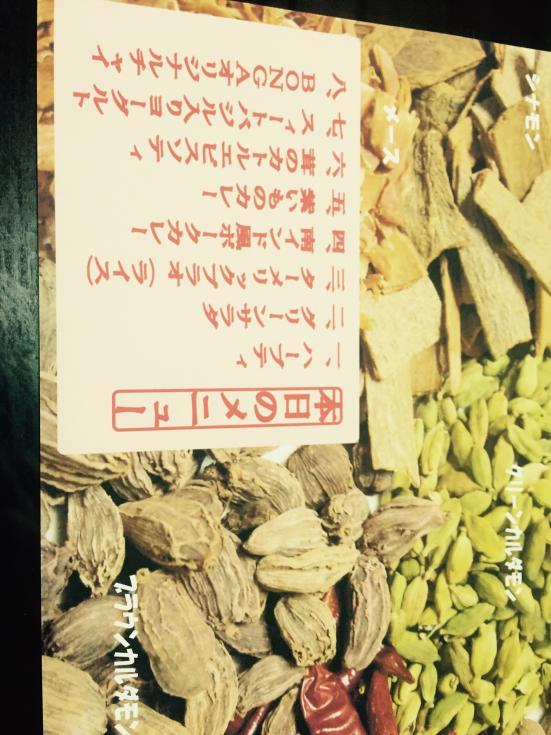 本日のメニュー
一、ハーブティ
二、グリーンサラダ
三、ターメリックプラオ（ライス）
四、南インド風ポークカレー
五、紫いものカレー
六、茸のカトルエピスソティ
七、スィートバジル入りヨーグルト
八、BONGAオリジナルチャイ
シナモン
メース
グリーンカルダモン
ブラウンカルダモン